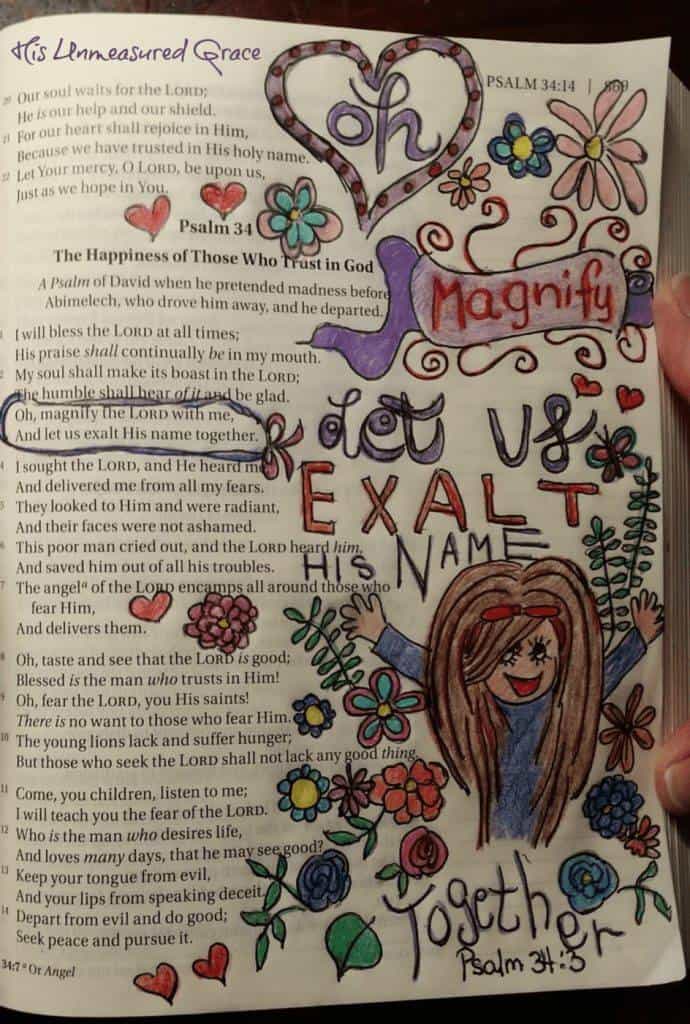 His Unmeasured Grace
PSALM 34:14 | 869
20 Our soul waits for the LORD;
He is our help and our shield.
21 For our heart shall rejoice in Him,
Because we have trusted in His holy name.
22 Let Your mercy, O LORD, be upon us,
Just as we hope in You.
Psalm 34
The Happiness of Those Who Trust in God
A Psalm of David when he pretended madness before
Abimelech, who drove him away, and he departed.
1 I will bless the LORD at all times;
His praise shall continually be in my mouth.
2 My soul shall make its boast in the LORD;
The humble shall hear of it and be glad.
Oh, magnify the LORD with me,
And let us exalt His name together.
4 I sought the LORD, and He heard me
And delivered me from all my fears.
5 They looked to Him and were radiant,
And their faces were not ashamed.
6 This poor man cried out, and the LORD heard him,
And saved him out of all his troubles.
7 The angelª of the LORD encamps all around those who
fear Him,
And delivers them.
8 Oh, taste and see that the LORD is good;
Blessed is the man who trusts in Him!
9 Oh, fear the LORD, you His saints!
There is no want to those who fear Him.
10 The young lions lack and suffer hunger;
But those who seek the LORD shall not lack any good thing.
11 Come, you children, listen to me;
I will teach you the fear of the LORD.
12 Who is the man who desires life,
And loves many days, that he may see good?
13 Keep your tongue from evil,
And your lips from speaking deceit.
14 Depart from evil and do good;
Seek peace and pursue it.
34:7 ª Or Angel
oh
Magnify
Let us
EXALT
HIS NAME
Together
Psalm 34:3